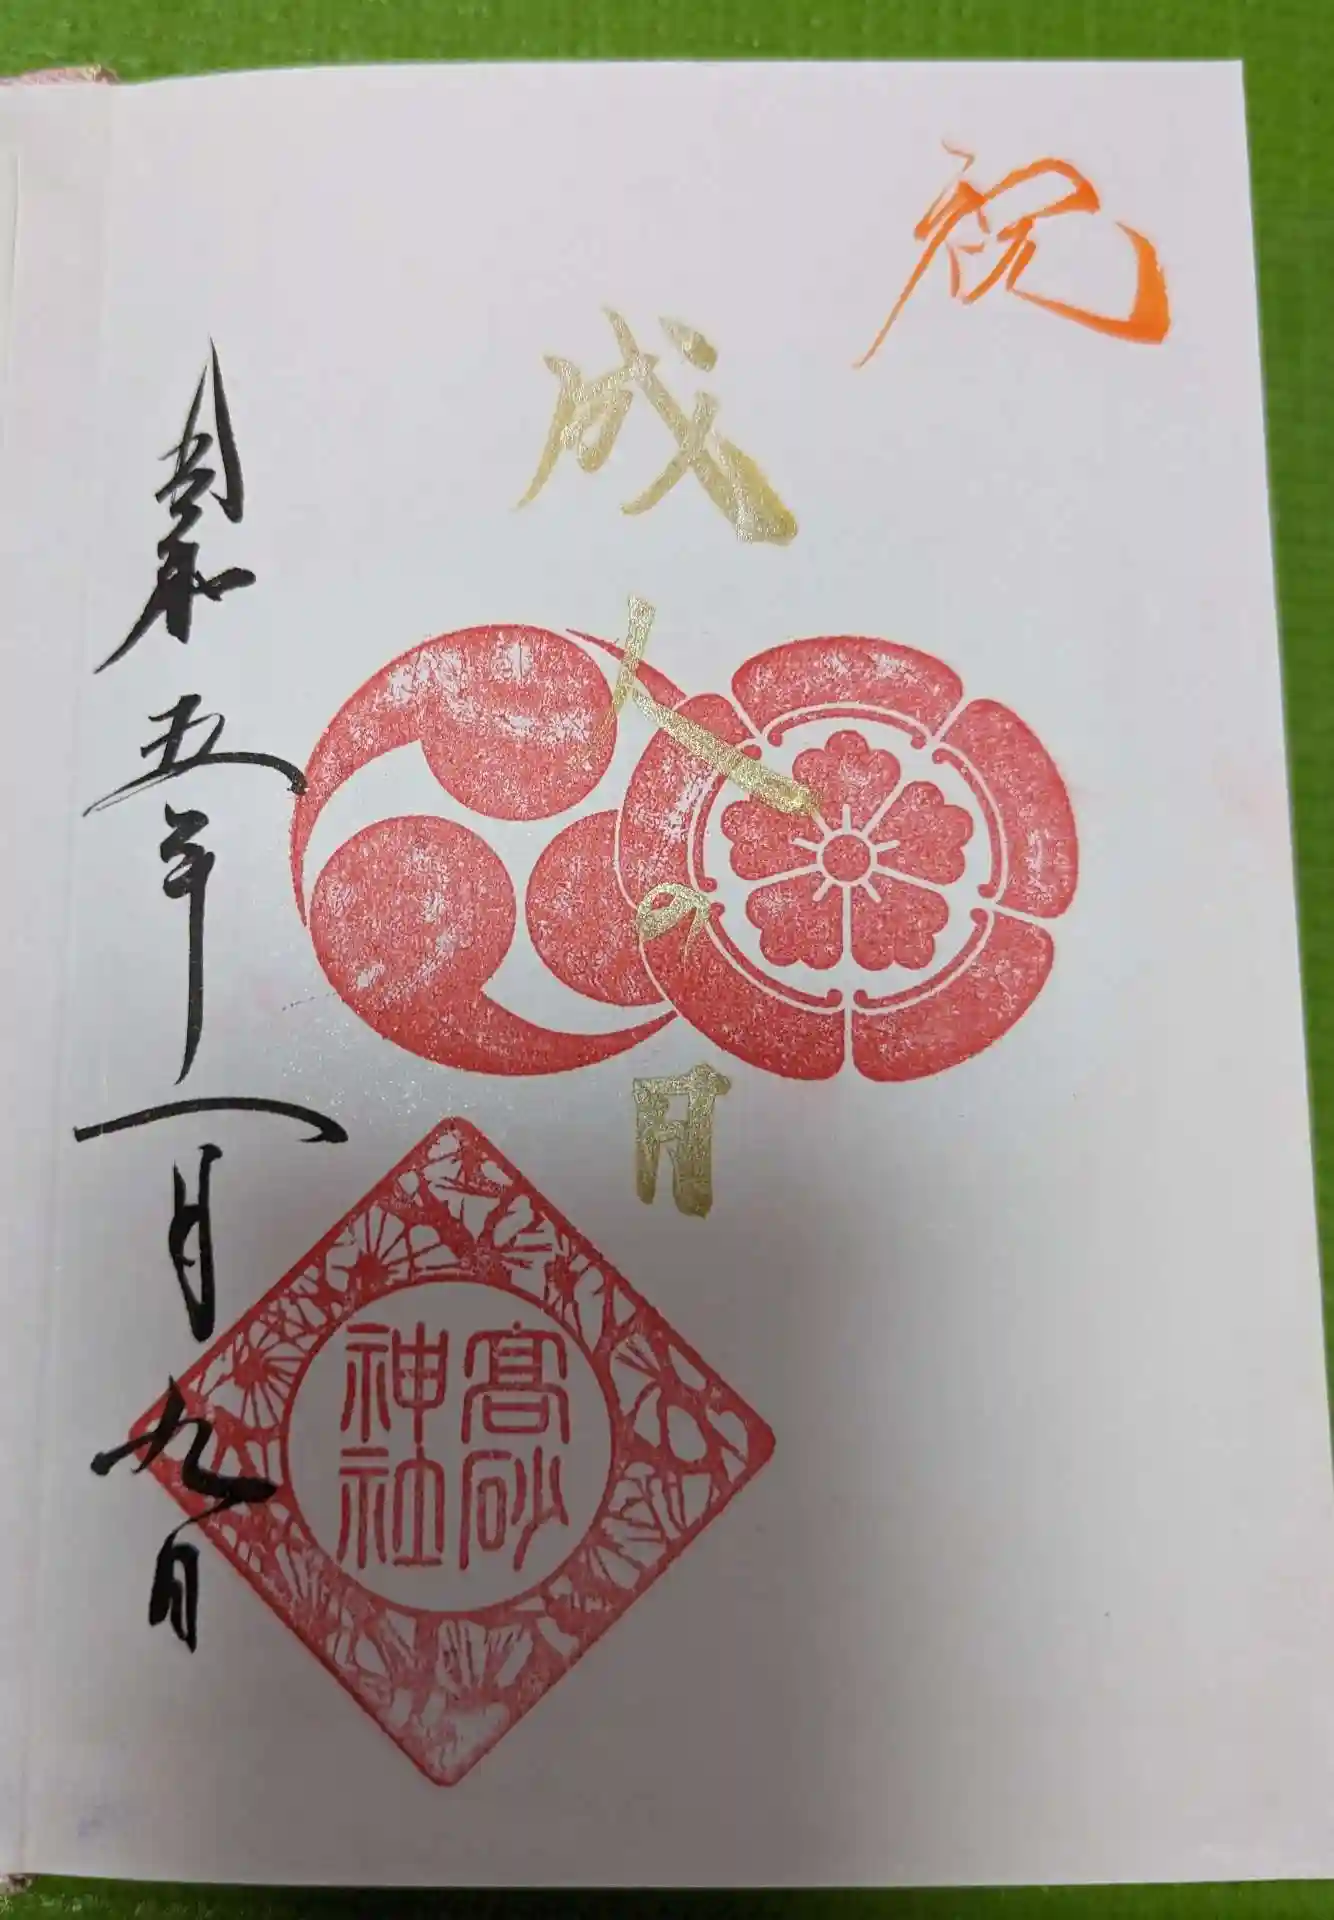 祝
成人の日
令和五年一月九日
髙砂
神社